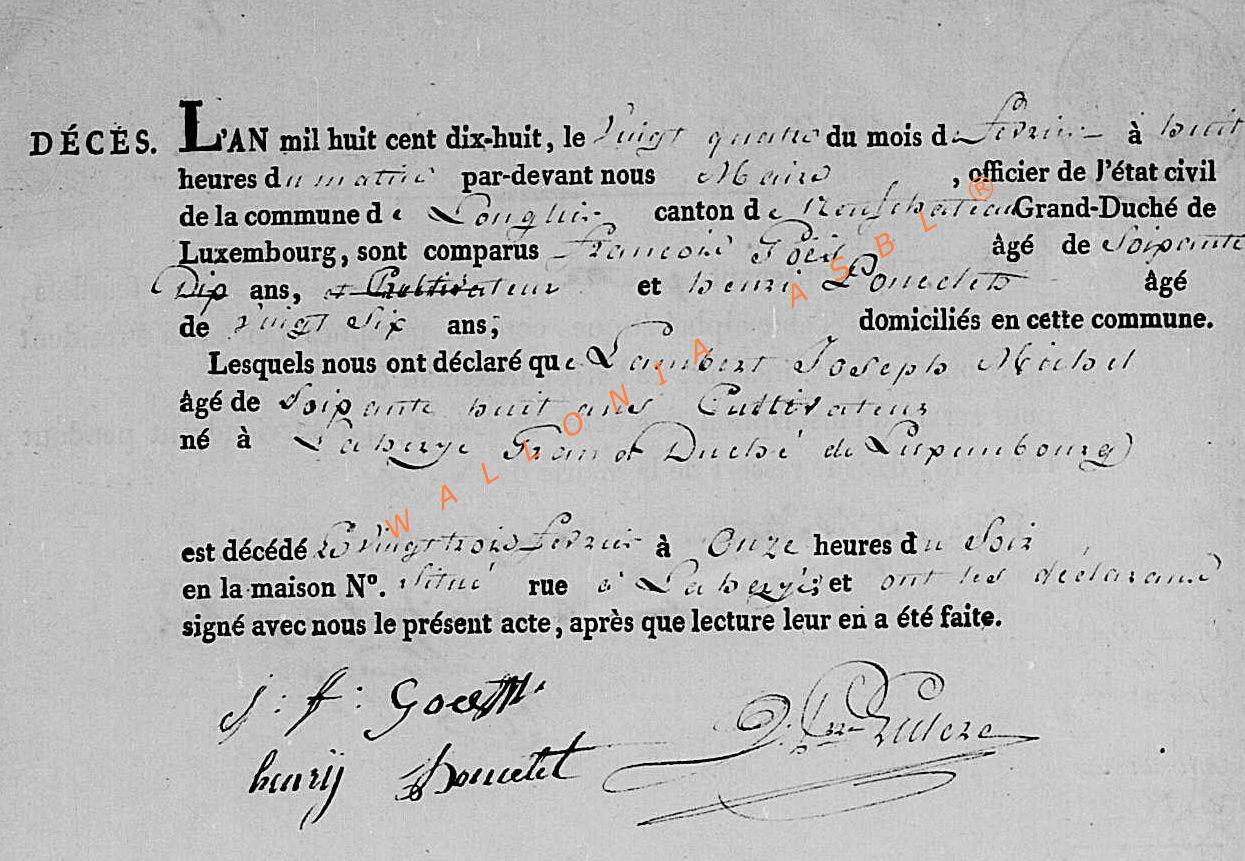 DÉCÈS. L'AN mil huit cent dix-huit, le Vingt quatre du mois de fevrier à huit
heures du matin par-devant nous Maire , officier de l'état civil
de la commune de Longlier canton de Neufchateau Grand-Duché de
Luxembourg, sont comparus francois âgé de Soixante
Dix ans, et Cultivateur et henri âgé
de vingt Six ans, domiciliés en cette commune.
Lesquels nous ont déclaré que Lambert Joseph Michel
âgé de Soixante huit ans Cultivateur
né à Laherge Grand Duché de Luxembourg
est décédé le vingt trois fevrier à Onze heures du Soir
en la maison Nº. Situé rue à Laherge; et ont les declarans
signé avec nous le présent acte, après que lecture leur en a été faite.
j : f :
henrij
WALLONIA ASBL ®